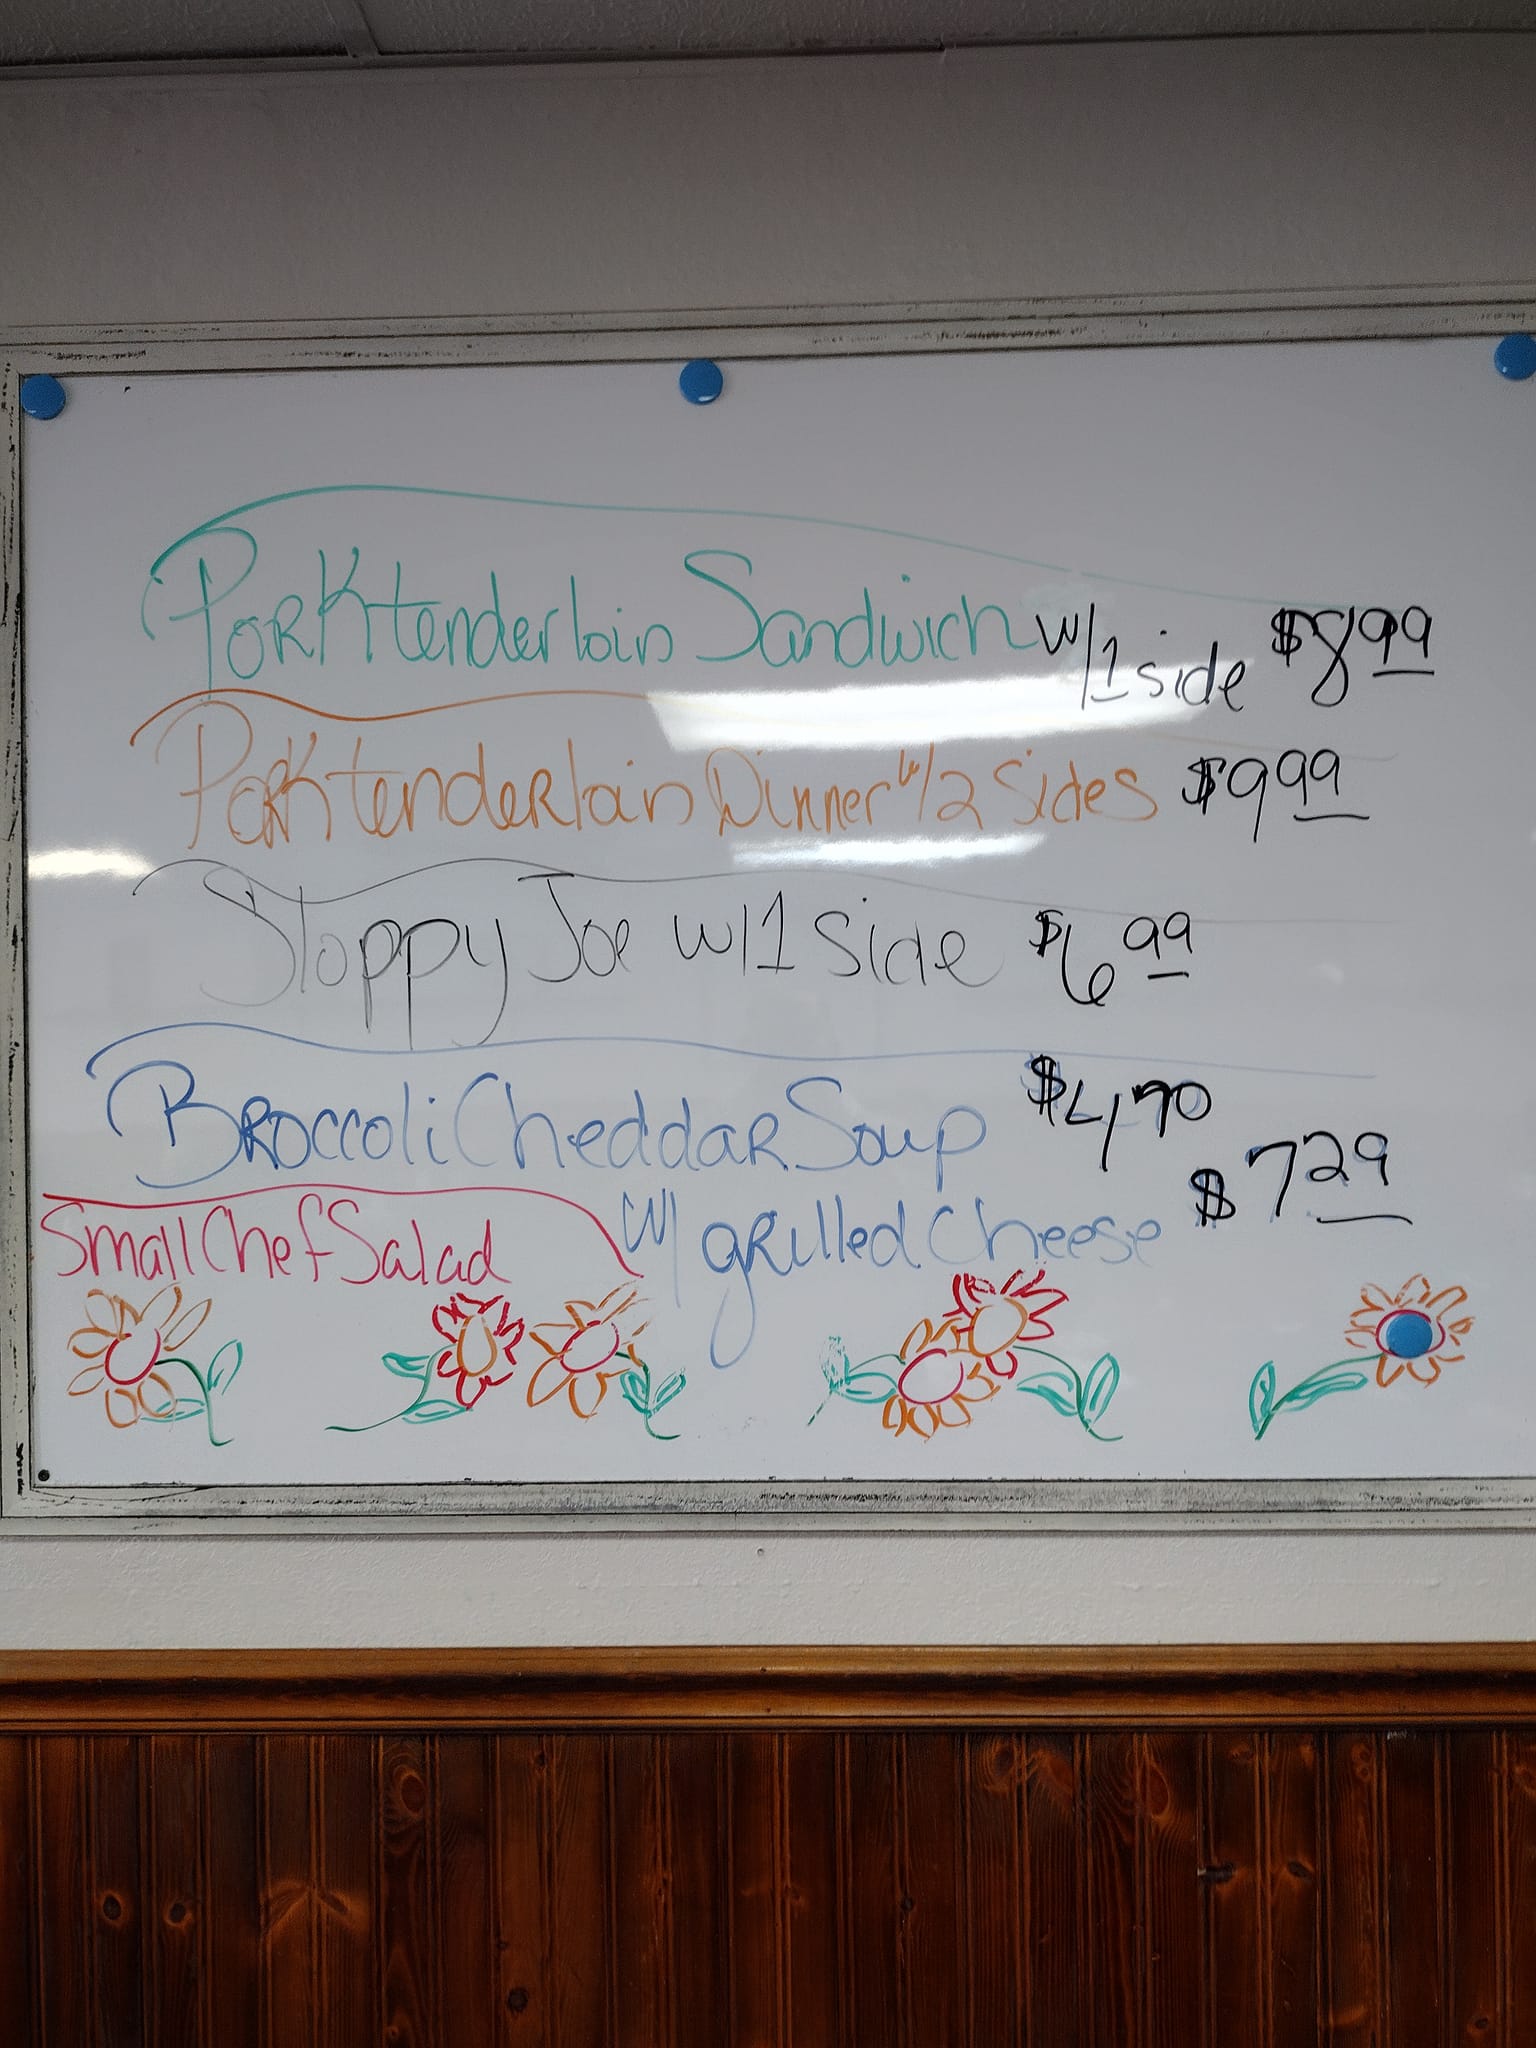 Pork tenderloin Sandwich w/1 side $8.99
Pork tenderloin Dinner w/2 Sides $9.99
Sloppy Joe w/1 Side $6.99
Broccoli Cheddar Soup $4.70
w/ grilled Cheese $7.29
Small Chef Salad